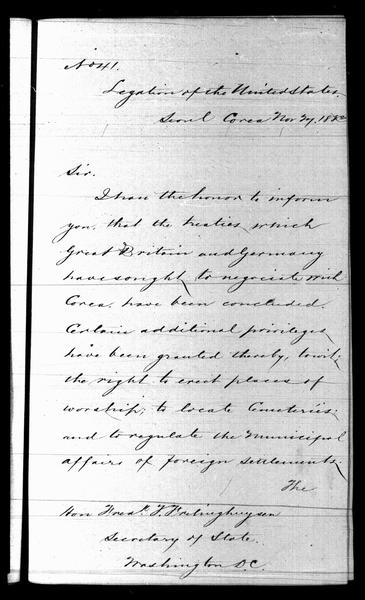 No 41.
Legation of the United States.
Seoul Corea Nov 27, 1883
Sir.
I have the honor to inform
you, that the treaties which
Great Britain and Germany
have sought to negociate with
Corea, have been concluded.
Certain additional privileges
have been granted thereby, towit;
the right to erect places of
worship; to locate Cemeteries;
and to regulate the Municipal
affairs of foreign settlements.
The
Hon Fredk. T. Frelinghuysen
Secretary of State.
Washington D.C.